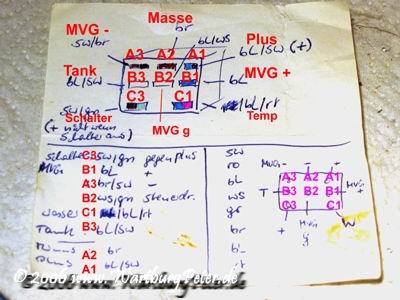 Masse
MVG -
br
sw/br
bl/ws
Plus
A3 A2 A1
bl/sw (+)
Tank
bl/sw
B3 B2 B1
bL
MVG +
C3 C1
sw/gn
bl/rt
Schalter
MVG g
Temp
(+ nicht wenn
Schalter aus)
Schalter C3 sw/gn gegen plus
B1 bL +
A3 br/sw -
B2 ws
wasser C1 bl/rt
Tank B3 bl/sw
A2 br
Plus A1 bl/sw
sw
ro
bL
ws
gr
br
MVG - - +
A3 A2 A1
T B3 B2 B1
C3 C1
MVG
g
W
© 2006 www.WartburgPeter.de